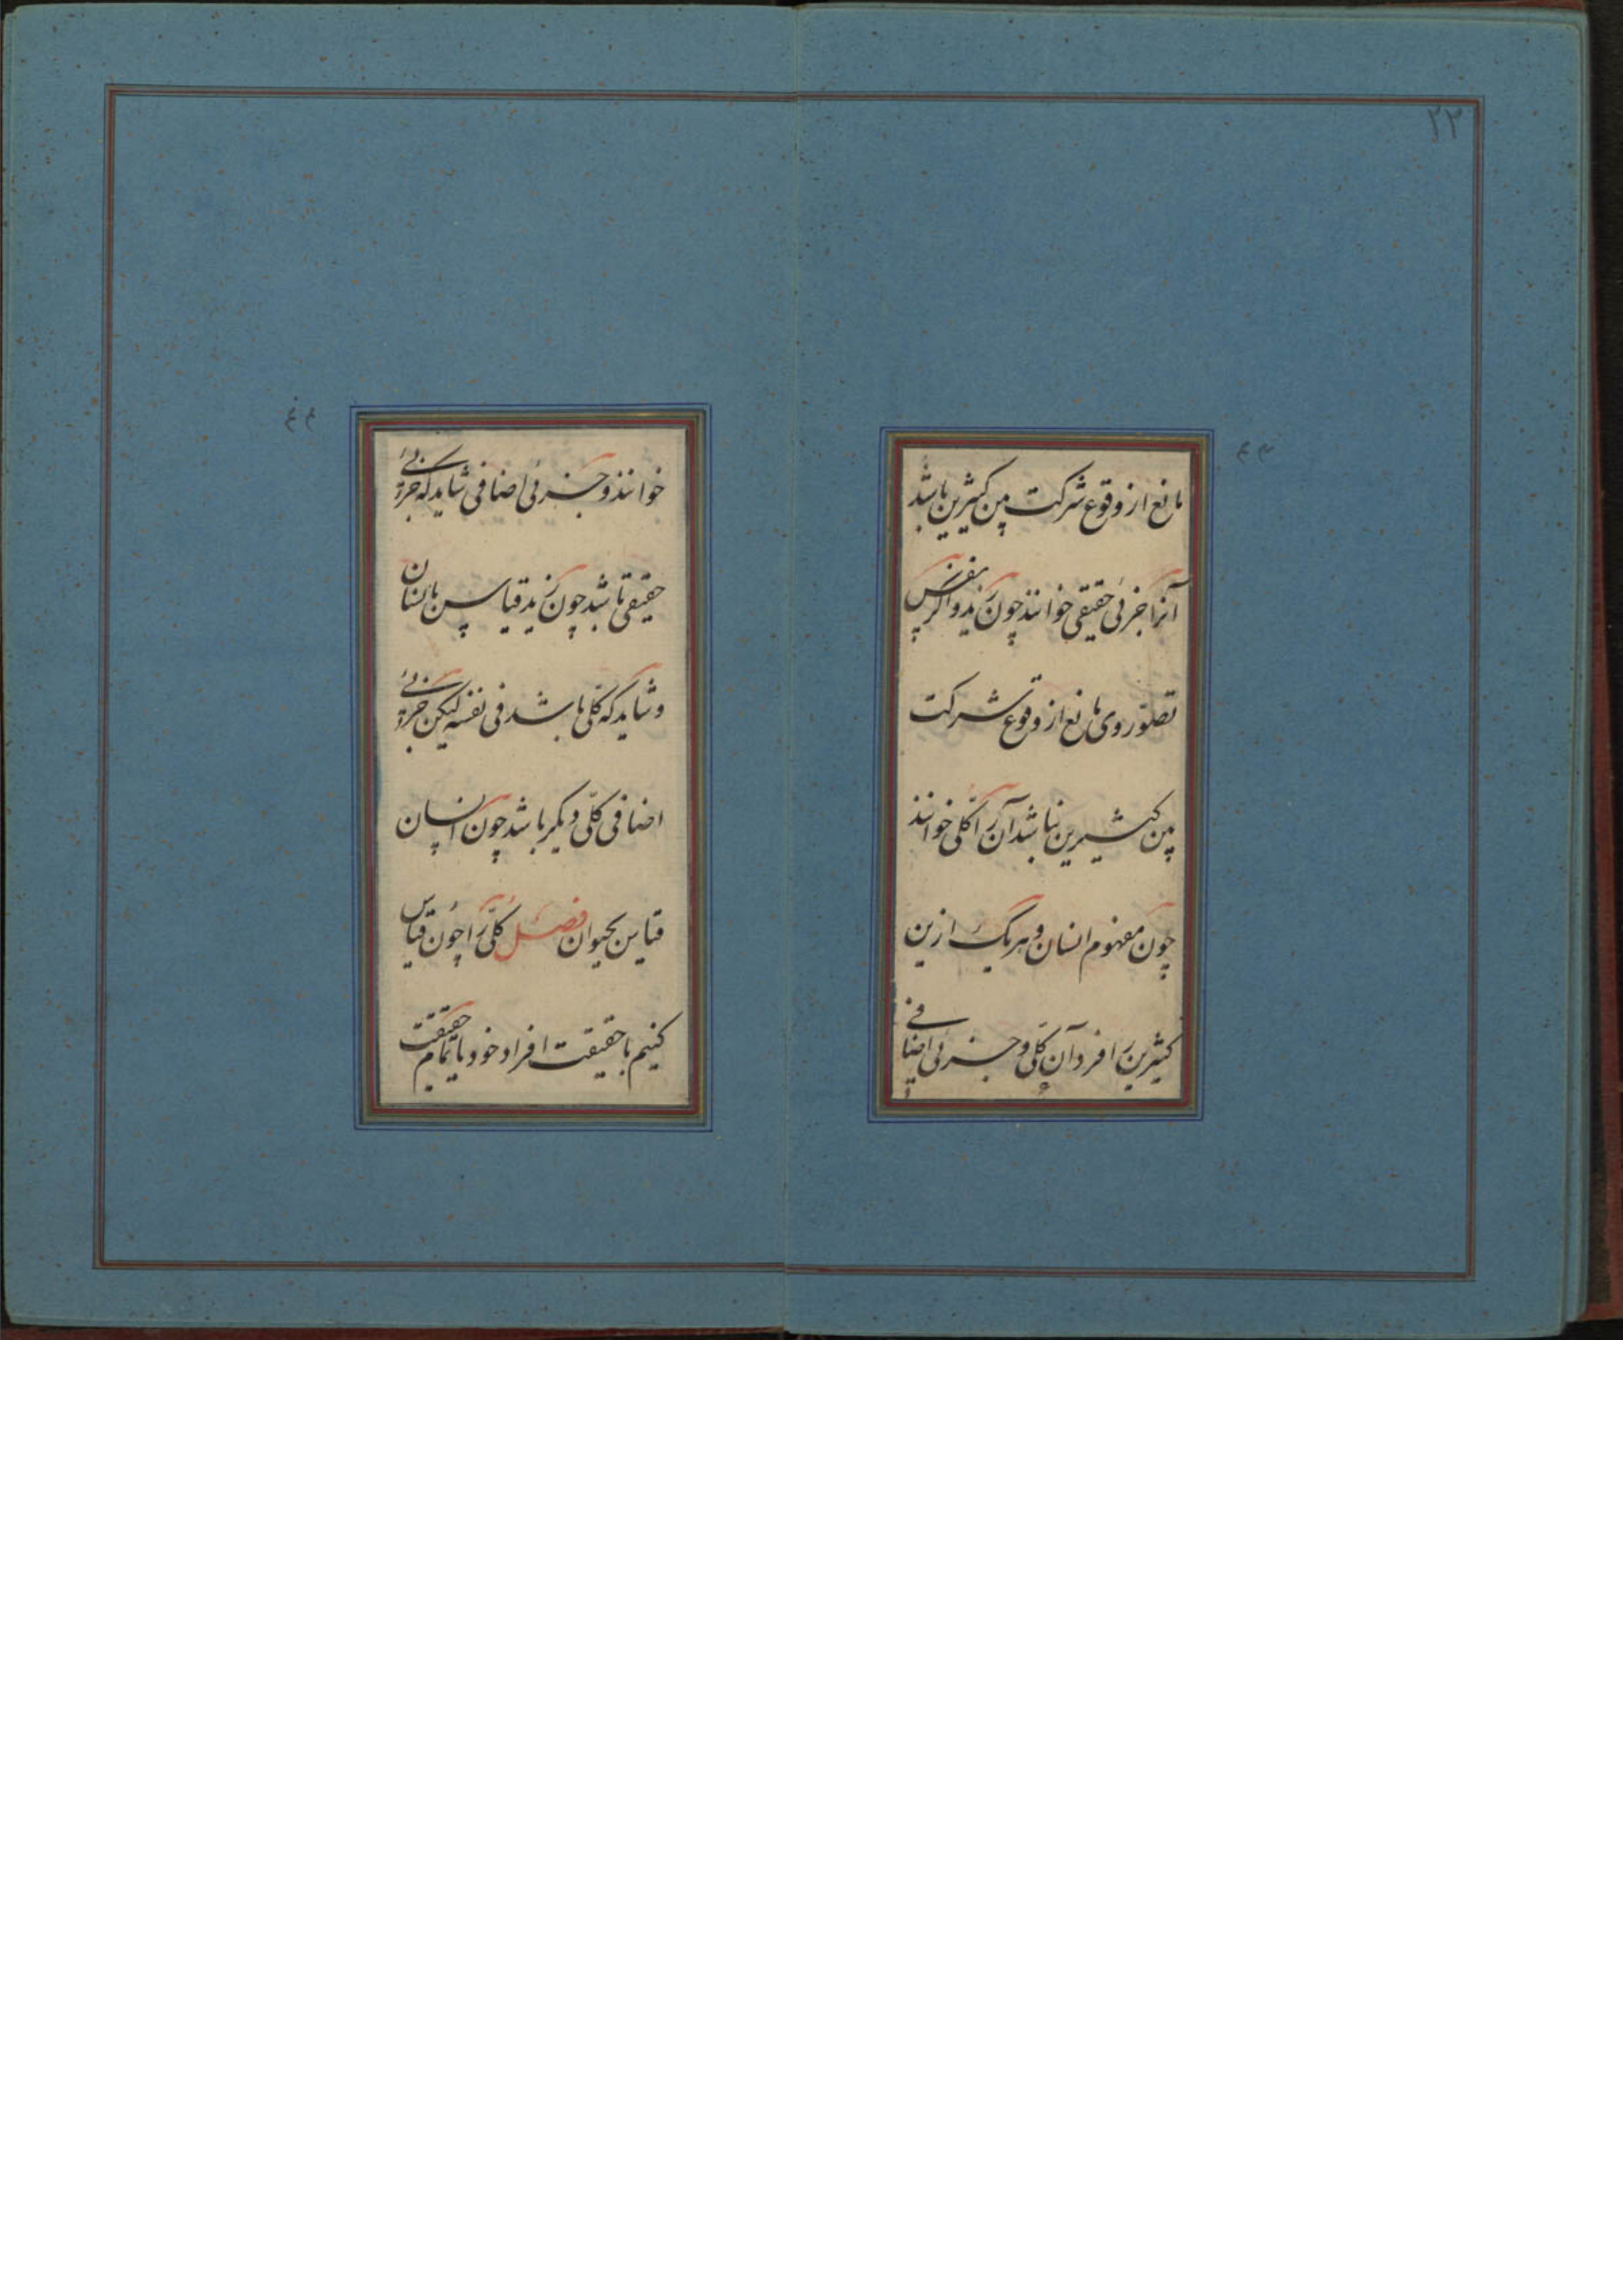 ۲۲
۴۳
مانع از وقوع شرکت بین کثیرین باشد
آنرا جزئی حقیقی خوانند چون زید و اگر بنفس
تصوّر وی مانع از وقوع شرکت
بین کثیرین نباشد آن را کلی خوانند
چون مفهوم انسان و هر یک ازین
کثیرین را فرد آن کلّی و جزئی اضافی
۴۴
خوانند و جزئی اضافی شاید که جزئی
حقیقی باشد چون زید قیاس بانسان
و شاید که کلّی باشد فی نفسه لیکن جزئی
اضافی کلّی دیگر باشد چون انسان
قیاس بحیوان فصل کلّی را چون قیاس
کنیم با حقیقت افراد خود یا تمام حقیقت